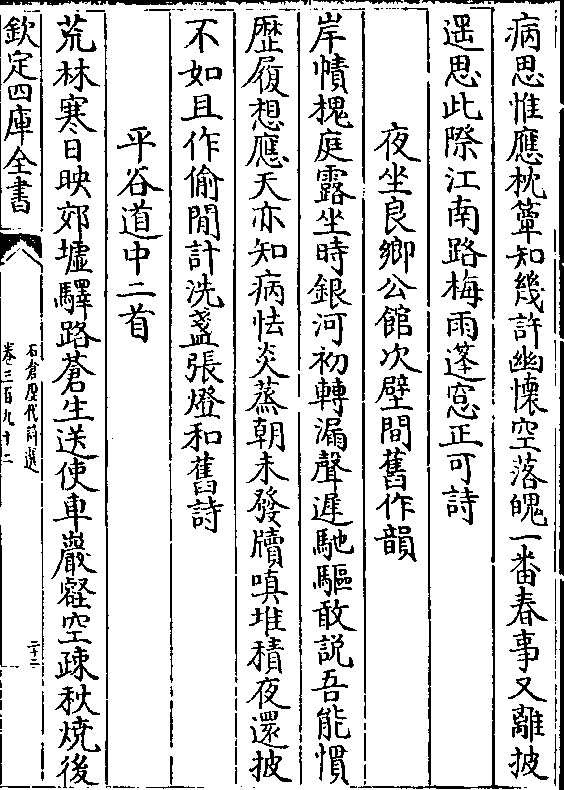 病思惟應枕簟知幾許幽懷空落魄一番春事又離披
遥思此際江南路梅雨蓬窓正可詩
夜坐良鄉公館次壁間舊作韻
岸幘槐庭露坐時銀河初轉漏聲遲馳驅敢説吾能慣
歴履想應天亦知病怯炎蒸朝未發牘嗔堆積夜還披
不如且作偷閒計洗盞張燈和舊詩
平谷道中二首
荒林寒日映郊墟驛路蒼生送使車巖壑空疎秋燒後
欽定四庫全書
石倉歴代詩選
卷三百九十二
二十二